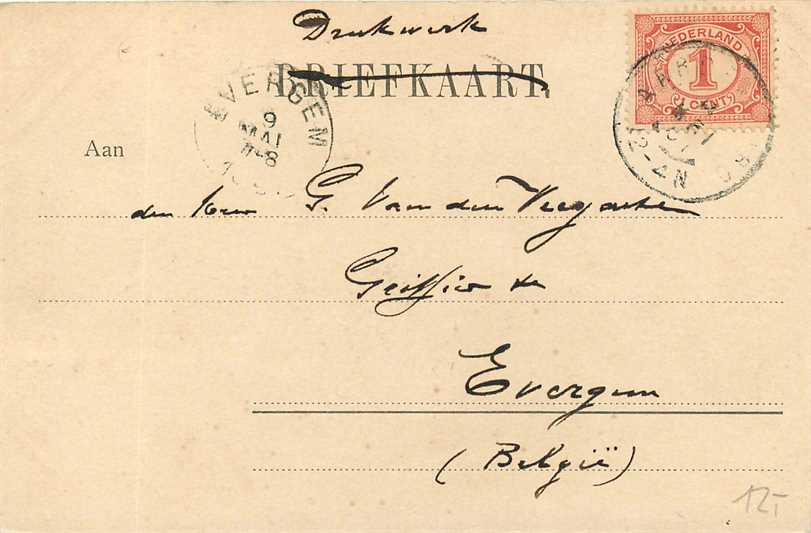 Drukwerk
BRIEFKAART.
NEDERLAND
1
CENT
EVERGEM
9
MAI
7-8
Aan
den Heer G. Van den
Griffier te
Evergem
(België)
12,-